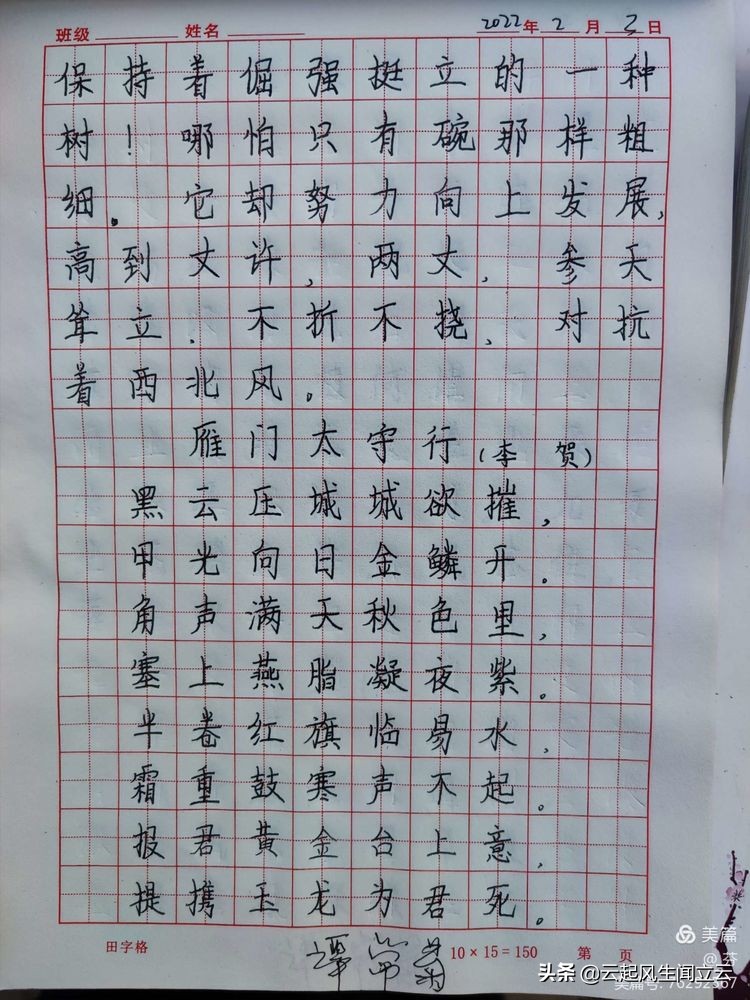 班级 姓名 2022年2月3日
保持着倔强挺立的一种
树！哪怕只有碗那样粗
细。它却努力向上发展，
高到丈许，两丈，参天
耸立，不折不挠，对抗
着西北风。
雁门太守行（李贺）
黑云压城城欲摧，
甲光向日金鳞开。
角声满天秋色里，
塞上燕脂凝夜紫。
半卷红旗临易水，
霜重鼓寒声不起。
报君黄金台上意，
提携玉龙为君死。
田字格 10×15=150 第 页
美篇
@芬
美篇号:76292367
头条 @云起风生闻立云